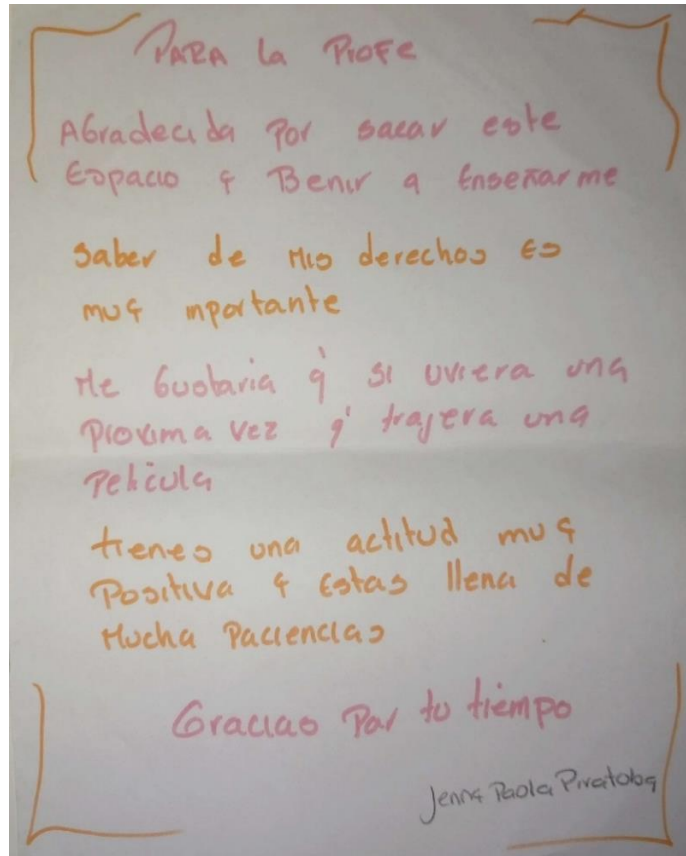 PARA la PROFE
AGradecida Por sacar este
Espacio y Benir a Enseñarme
saber de Mis derechos Es
muy inportante
Me Gustaria q' si uviera una
Proxima vez q' trajera una
Pelicula
tienes una actitud muy
Positiva y Estas llena de
Mucha Paciencias
Gracias Por tu tiempo
Jenny Paola Piratoba